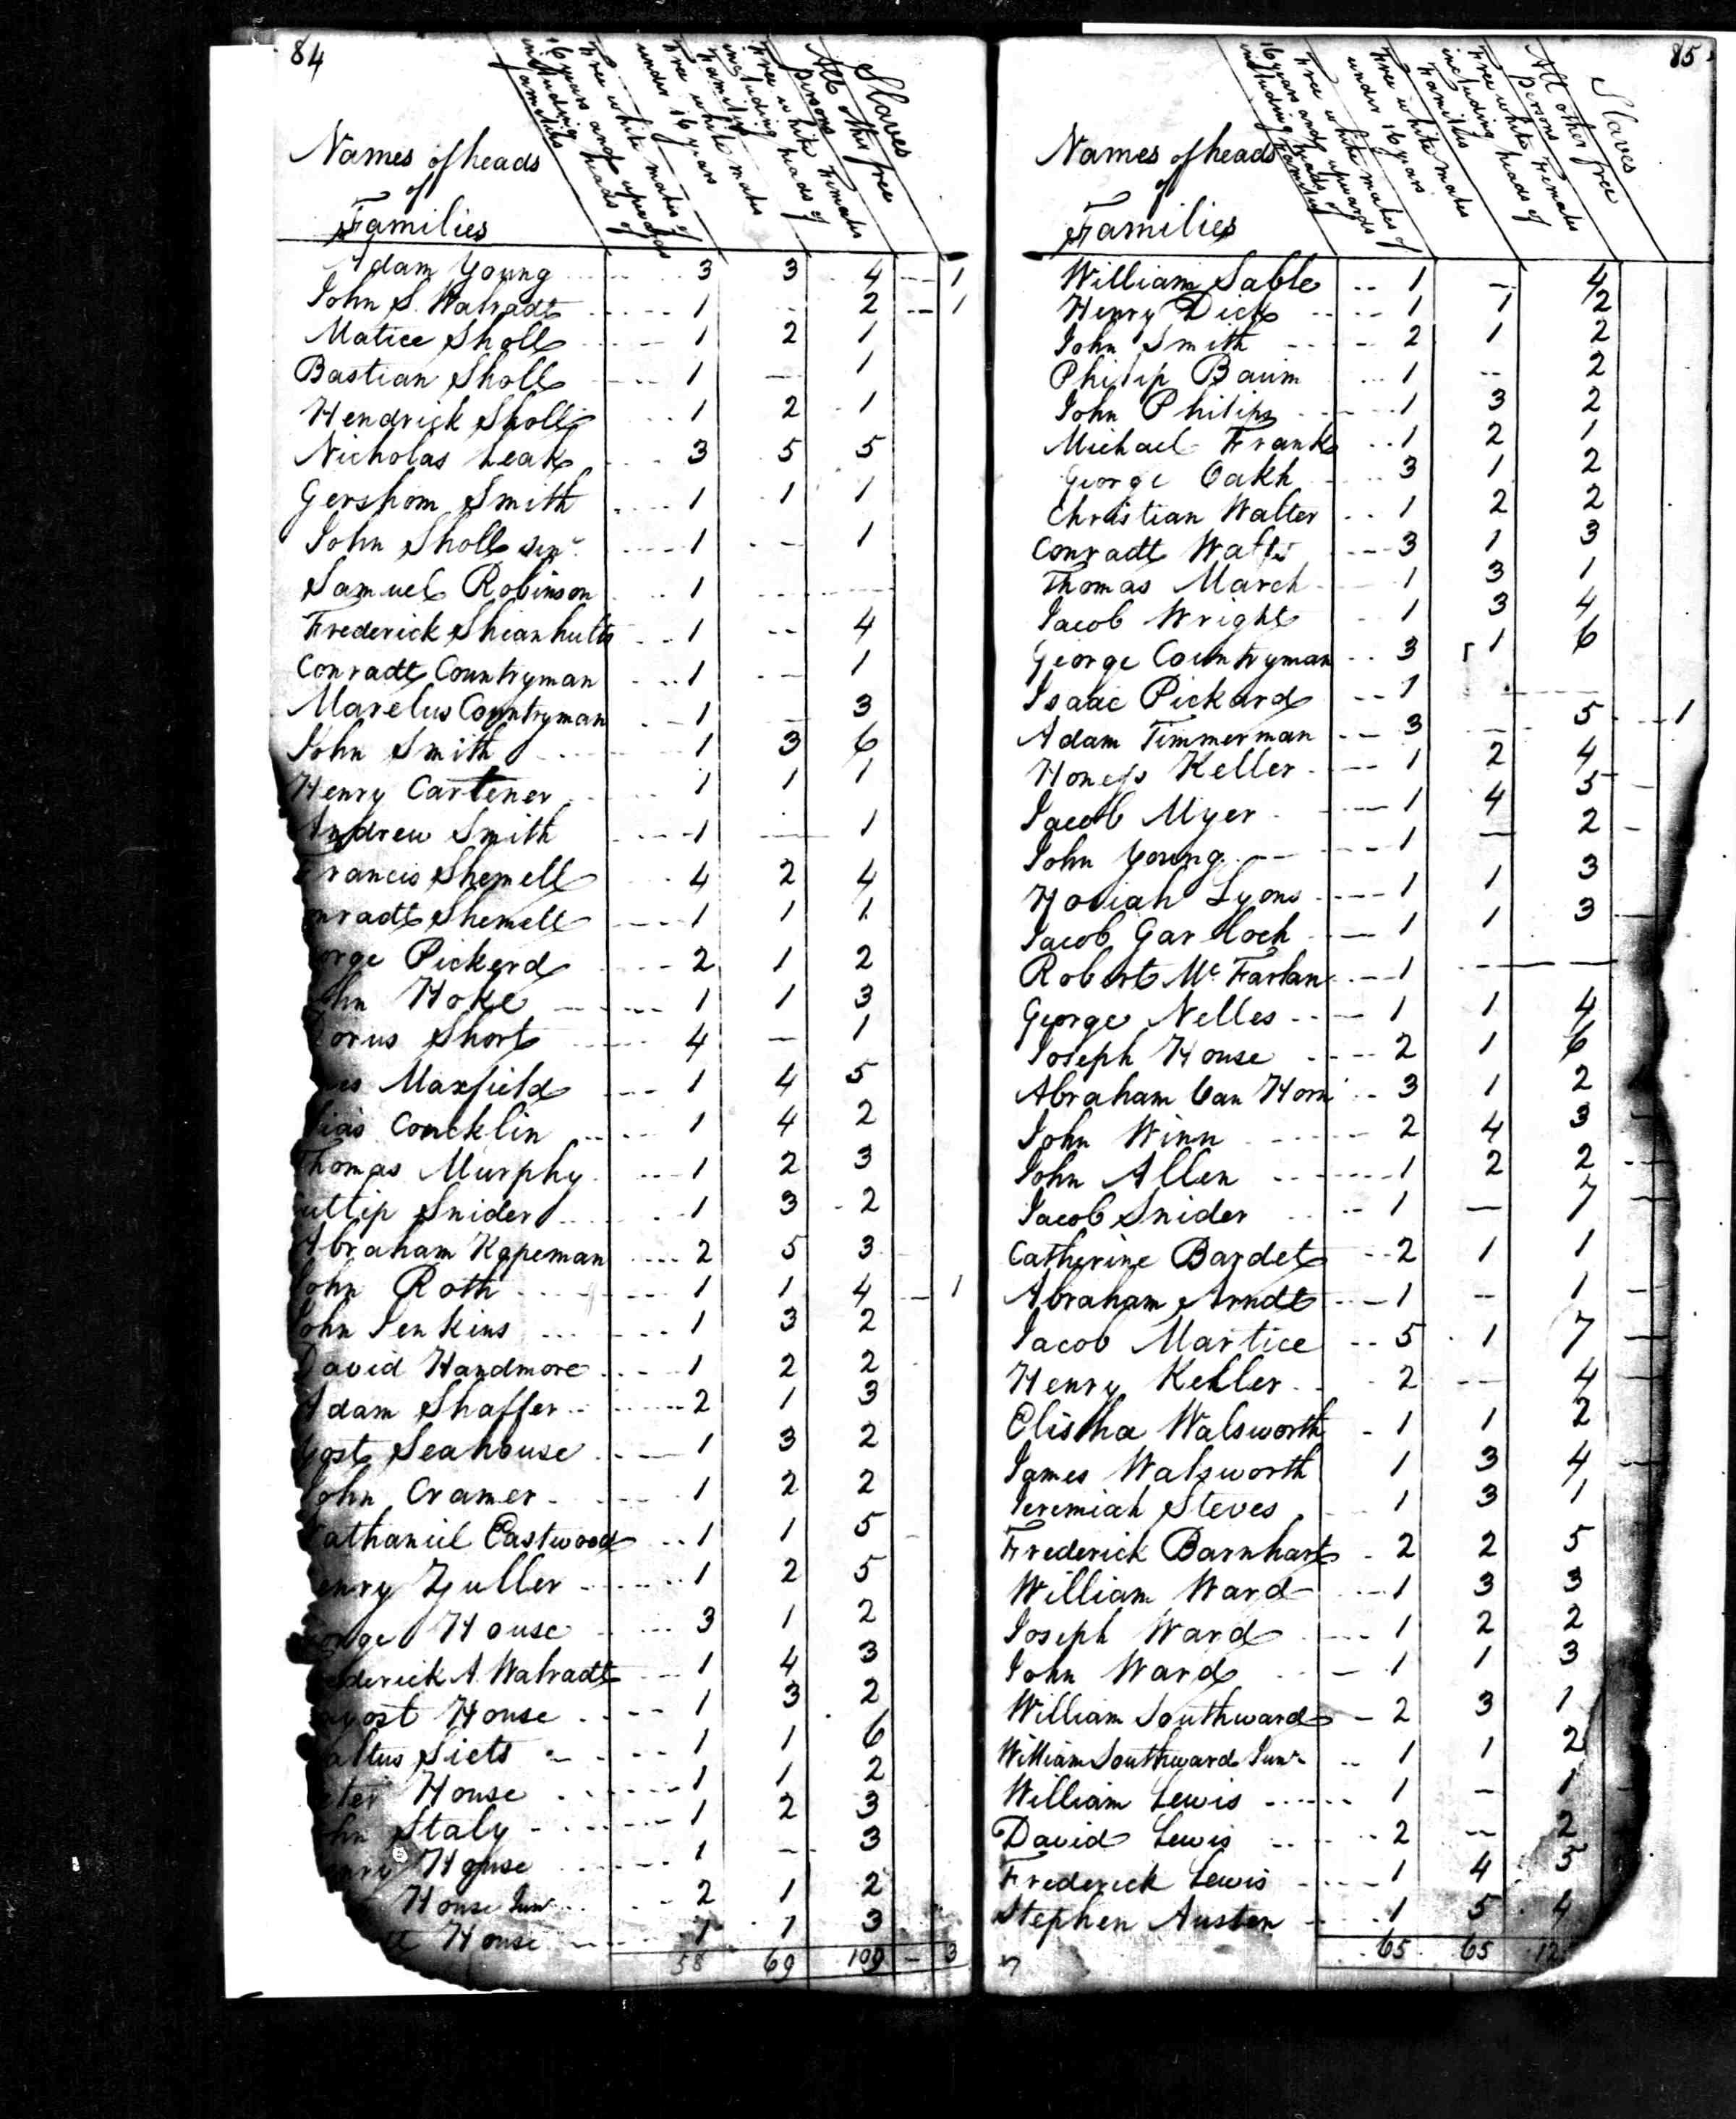 84
Names of heads
of
Families
Free white males of
16 years and upwards
including heads of
families
Free white males
under 16 years
Free white Females
including heads of
Families
All other free
persons
Slaves
Adam Young 3 3 4 -- 1
John S. Walradt 1 -- 2 -- 1
Matice Sholl 1 2 1
Bastian Sholl 1 -- 1
Hendrick Sholl 1 2 1
Nicholas Leak 3 5 5
Gershom Smith 1 1 1
John Sholl Senr. 1 -- 1
Samuel Robinson 1 -- --
Frederick Shianhults 1 -- 4
Conradt Countryman 1 -- 1
Marelus Countryman 1 -- 3
John Smith 1 3 6
Henry Cartener 1 1 1
Andrew Smith 1 -- 1
Francis Shemell 4 2 4
onradt Shemell 1 1 1
orge Pickerd 2 1 2
ohn Hoke 1 1 3
orus Short 4 -- 1
Maxfield 1 4 5
ias Concklin 1 4 2
Thomas Murphy 1 2 3
uttip Snider 1 3 2
Abraham Kapeman 2 5 3
John Roth 1 1 4 -- 1
John Jenkins 1 3 2
David Handmore 1 2 2
Adam Shaffer 2 1 3
Yost Seahouse 1 3 2
John Cramer 1 2 2
Nathaniel Eastwood 1 1 5
enry Zuller 1 2 5
eorge House 3 1 2
ederick A. Walradt 1 4 3
yost House 1 3 2
altus Siets 1 1 6
eter House 1 1 2
ohn Staly 1 2 3
enry House 1 -- 3
House Junr 2 1 2
House 1 1 3
58 69 109 -- 3
85
Names of heads
of
Families
Free white males of
16 years and upwards
including heads of
families
Free white males
under 16 years
Free white Females
including heads of
Families
All other free
persons
Slaves
William Sable 1 -- 4
Henry Dick 1 1 2
John Smith 2 1 2
Philip Baum 1 -- 2
John Philips 1 3 2
Michael Frank 1 2 1
George Oakh 3 1 2
Christian Walter 1 2 2
Conradt Walts 3 1 3
Thomas March 1 3 1
Jacob Wright 1 3 4
George Countryman 3 1 6
Isaac Pickard 1 -- --
Adam Timmerman 3 -- 5 -- 1
Keller 1 2 4
Jacob Myer 1 4 5
John Young 1 -- 2
Hosiah Lyons 1 1 3
Jacob Garlock 1 1 3
Robert Mc Farlan 1 -- --
George Nelles 1 1 4
Joseph House 2 1 6
Abraham Van Horn 3 1 2
John Winn 2 4 3
John Allen 1 2 2
Jacob Snider 1 -- 7
Catherine Bardet 2 1 1
Abraham Arndt 1 -- 1
Jacob Martice 5 1 7
Henry Keller 2 -- 4
Elistha Walsworth 1 1 2
James Walsworth 1 3 4
Jeremiah Steves 1 3 1
Frederick Barnhart 2 2 5
William Ward 1 3 3
Joseph Ward 1 2 2
John Ward 1 1 3
William Southward 2 3 1
William Southward Junr 1 1 2
William Lewis 1 -- 1
David Lewis 2 -- 2
Frederick Lewis 1 4 5
Stephen Austen 1 5 4
65 65 12